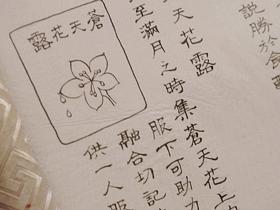 說勝於食
天花露
至滿月之時集蒼天花上
服下可助力
融合切記
供一人服
蒼天花露